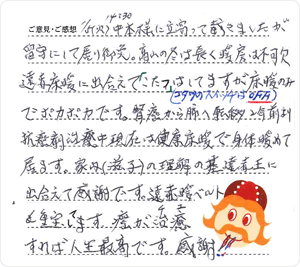 ご意見・ご感想
14:30
9/1(火)中本様に立寄って戴きましたが
留守にして居り御免。高山の冬は長く暖房は不可欠
遠赤床暖に出会えてこたつはしてますが床暖のみ
(コタツのスイッチはOFF)
でポカポカです。腎癌から肺へ転移 年前より
抗癌剤治療中現在は健康床暖で身体暖めて
居ます。家内(滋子)の理解の基遠赤王に
出会えて感謝です。遠赤暖ベルト
も重宝してます。癌が治癒
すれば人生最高です。感謝!!